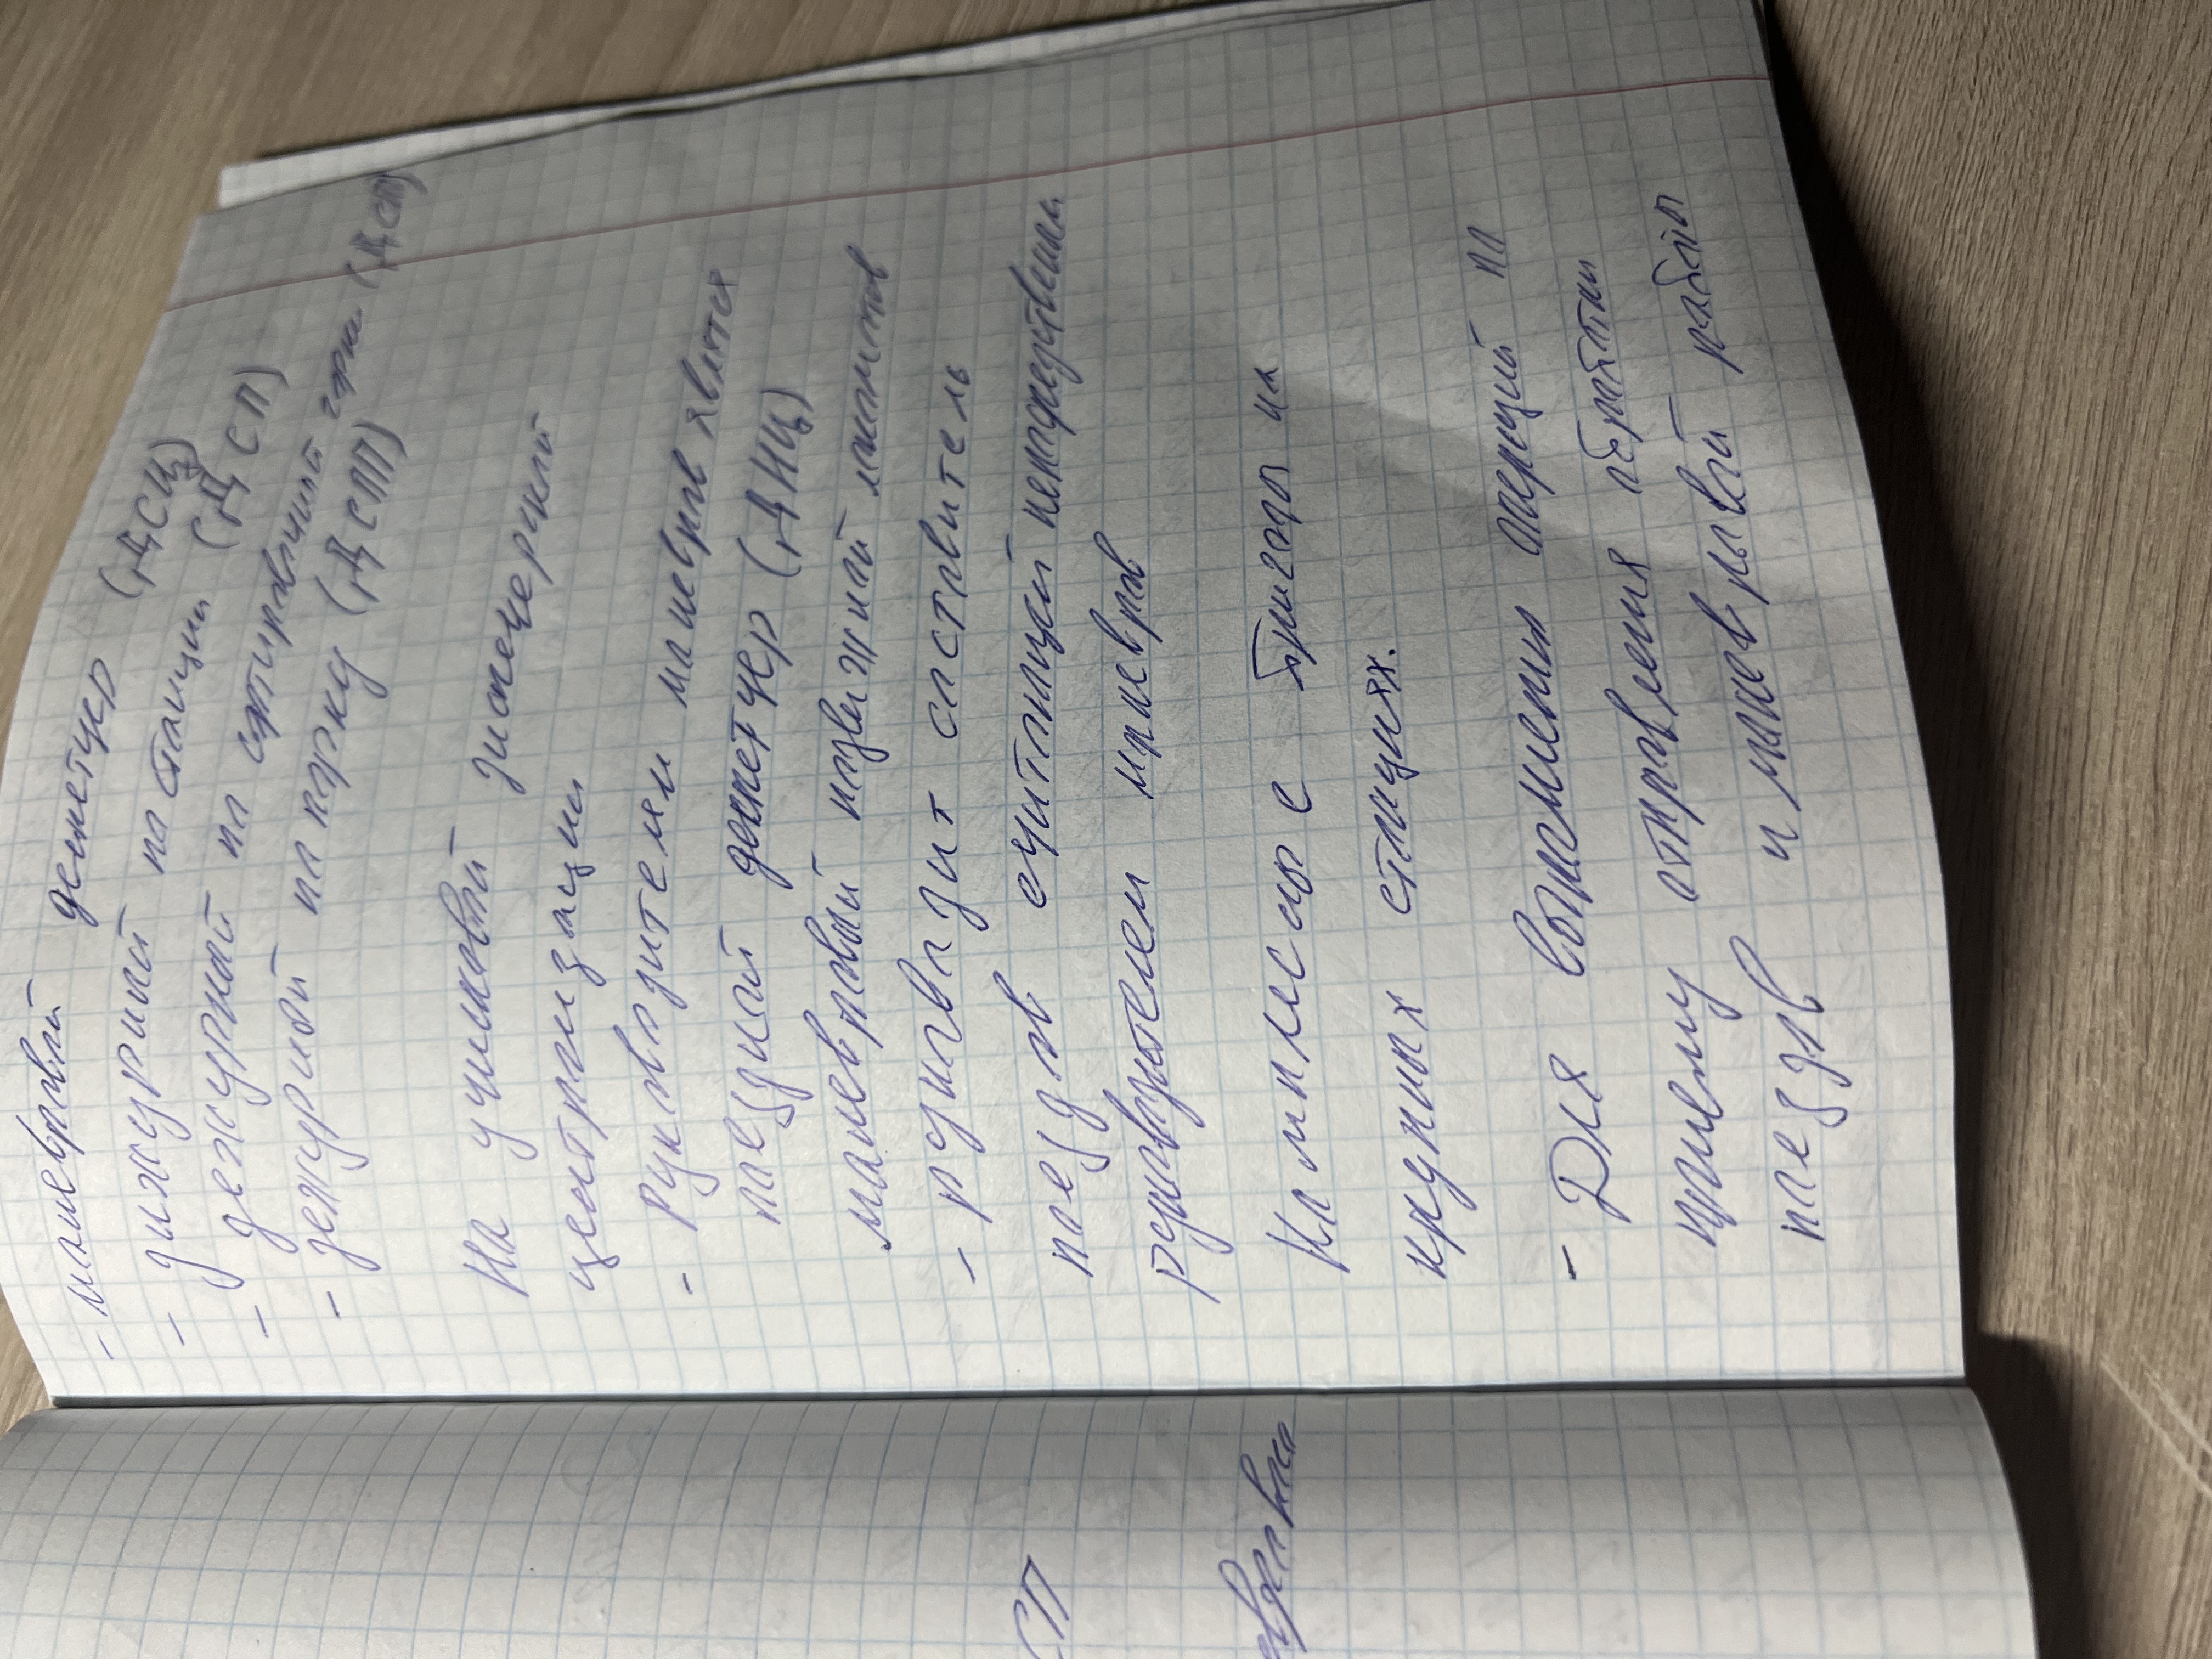 - маневровый диспетчер (ДСЦ)
- дижурный по станции (ДСП)
- дежурный по сортировочной горки (ДСПГ)
- дежурный по парку (ДСПП)
На участковой диспечерской
централизации
- Руководителем маневров явлется
поездной диспетчер (ДНЦ)
маневровый поездной локомотов
- руководит составитель
поездов считающий непосредственны
руководителем маневров
Комплесные бригады на
крупных станциях.
- Для выполнения операций по
отправления обработки
поездов и маневровый работы
СП